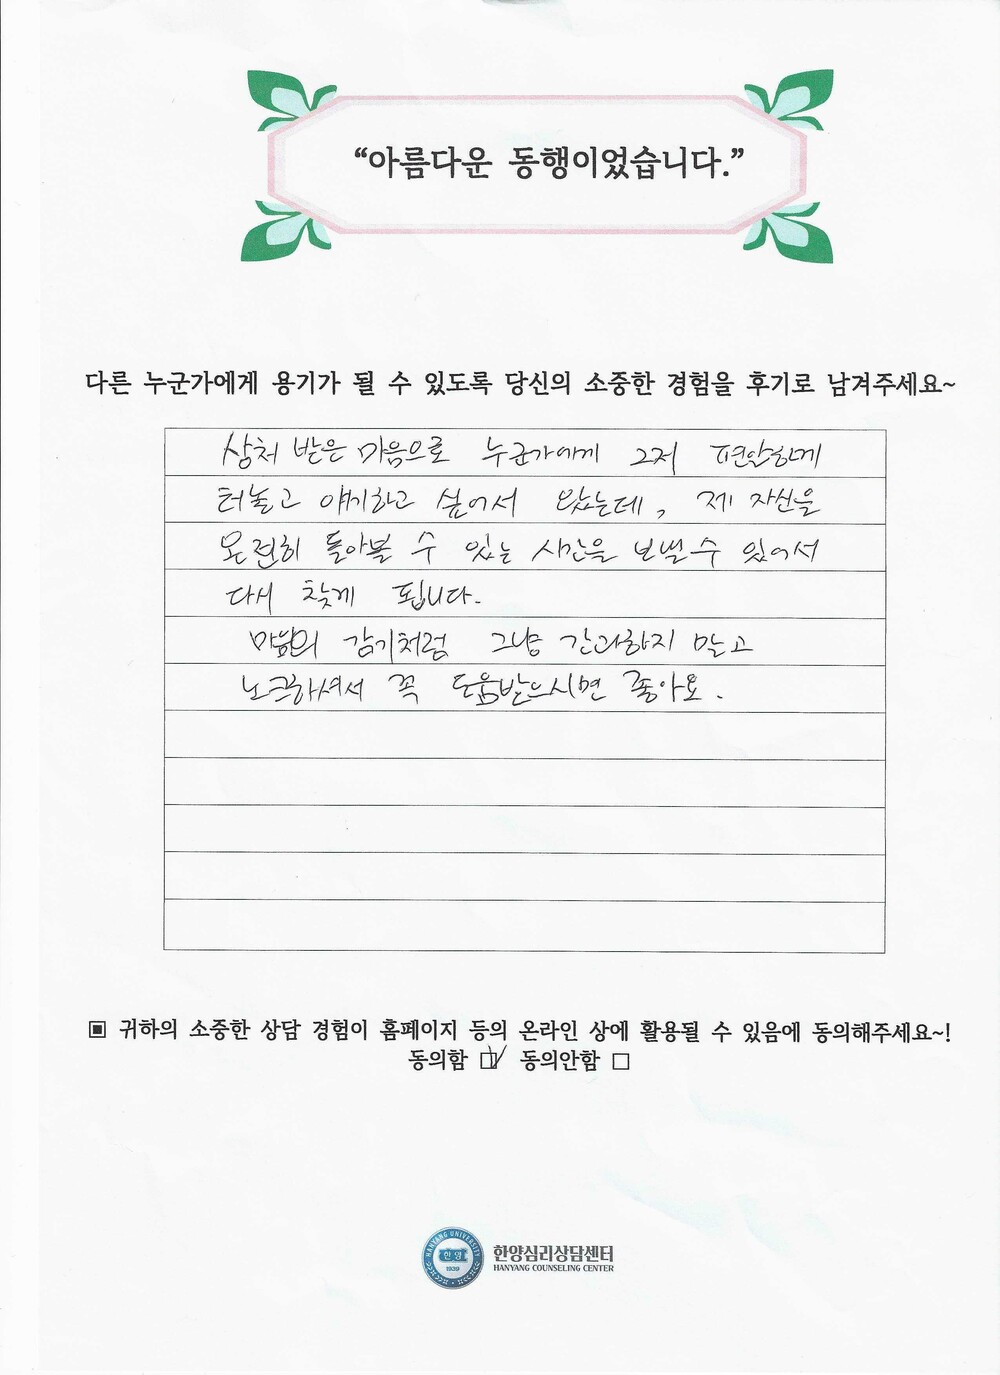 “아름다운 동행이었습니다.”
다른 누군가에게 용기가 될 수 있도록 당신의 소중한 경험을 후기로 남겨주세요~
상처 받은 마음으로 누군가에게 그저 편안하게
터놓고 얘기하고 싶어서 왔는데, 제 자신을
온전히 돌아볼 수 있는 시간을 보낼 수 있어서
다시 찾게 됩니다.
마음의 감기처럼 그냥 간과하지 말고
노크하셔서 꼭 도움받으시면 좋아요.
▣ 귀하의 소중한 상담 경험이 홈페이지 등의 온라인 상에 활용될 수 있음에 동의해주세요~!
동의함 ☑ 동의안함 □
HANYANG UNIVERSITY
한양
1939
한양심리상담센터
HANYANG COUNSELING CENTER